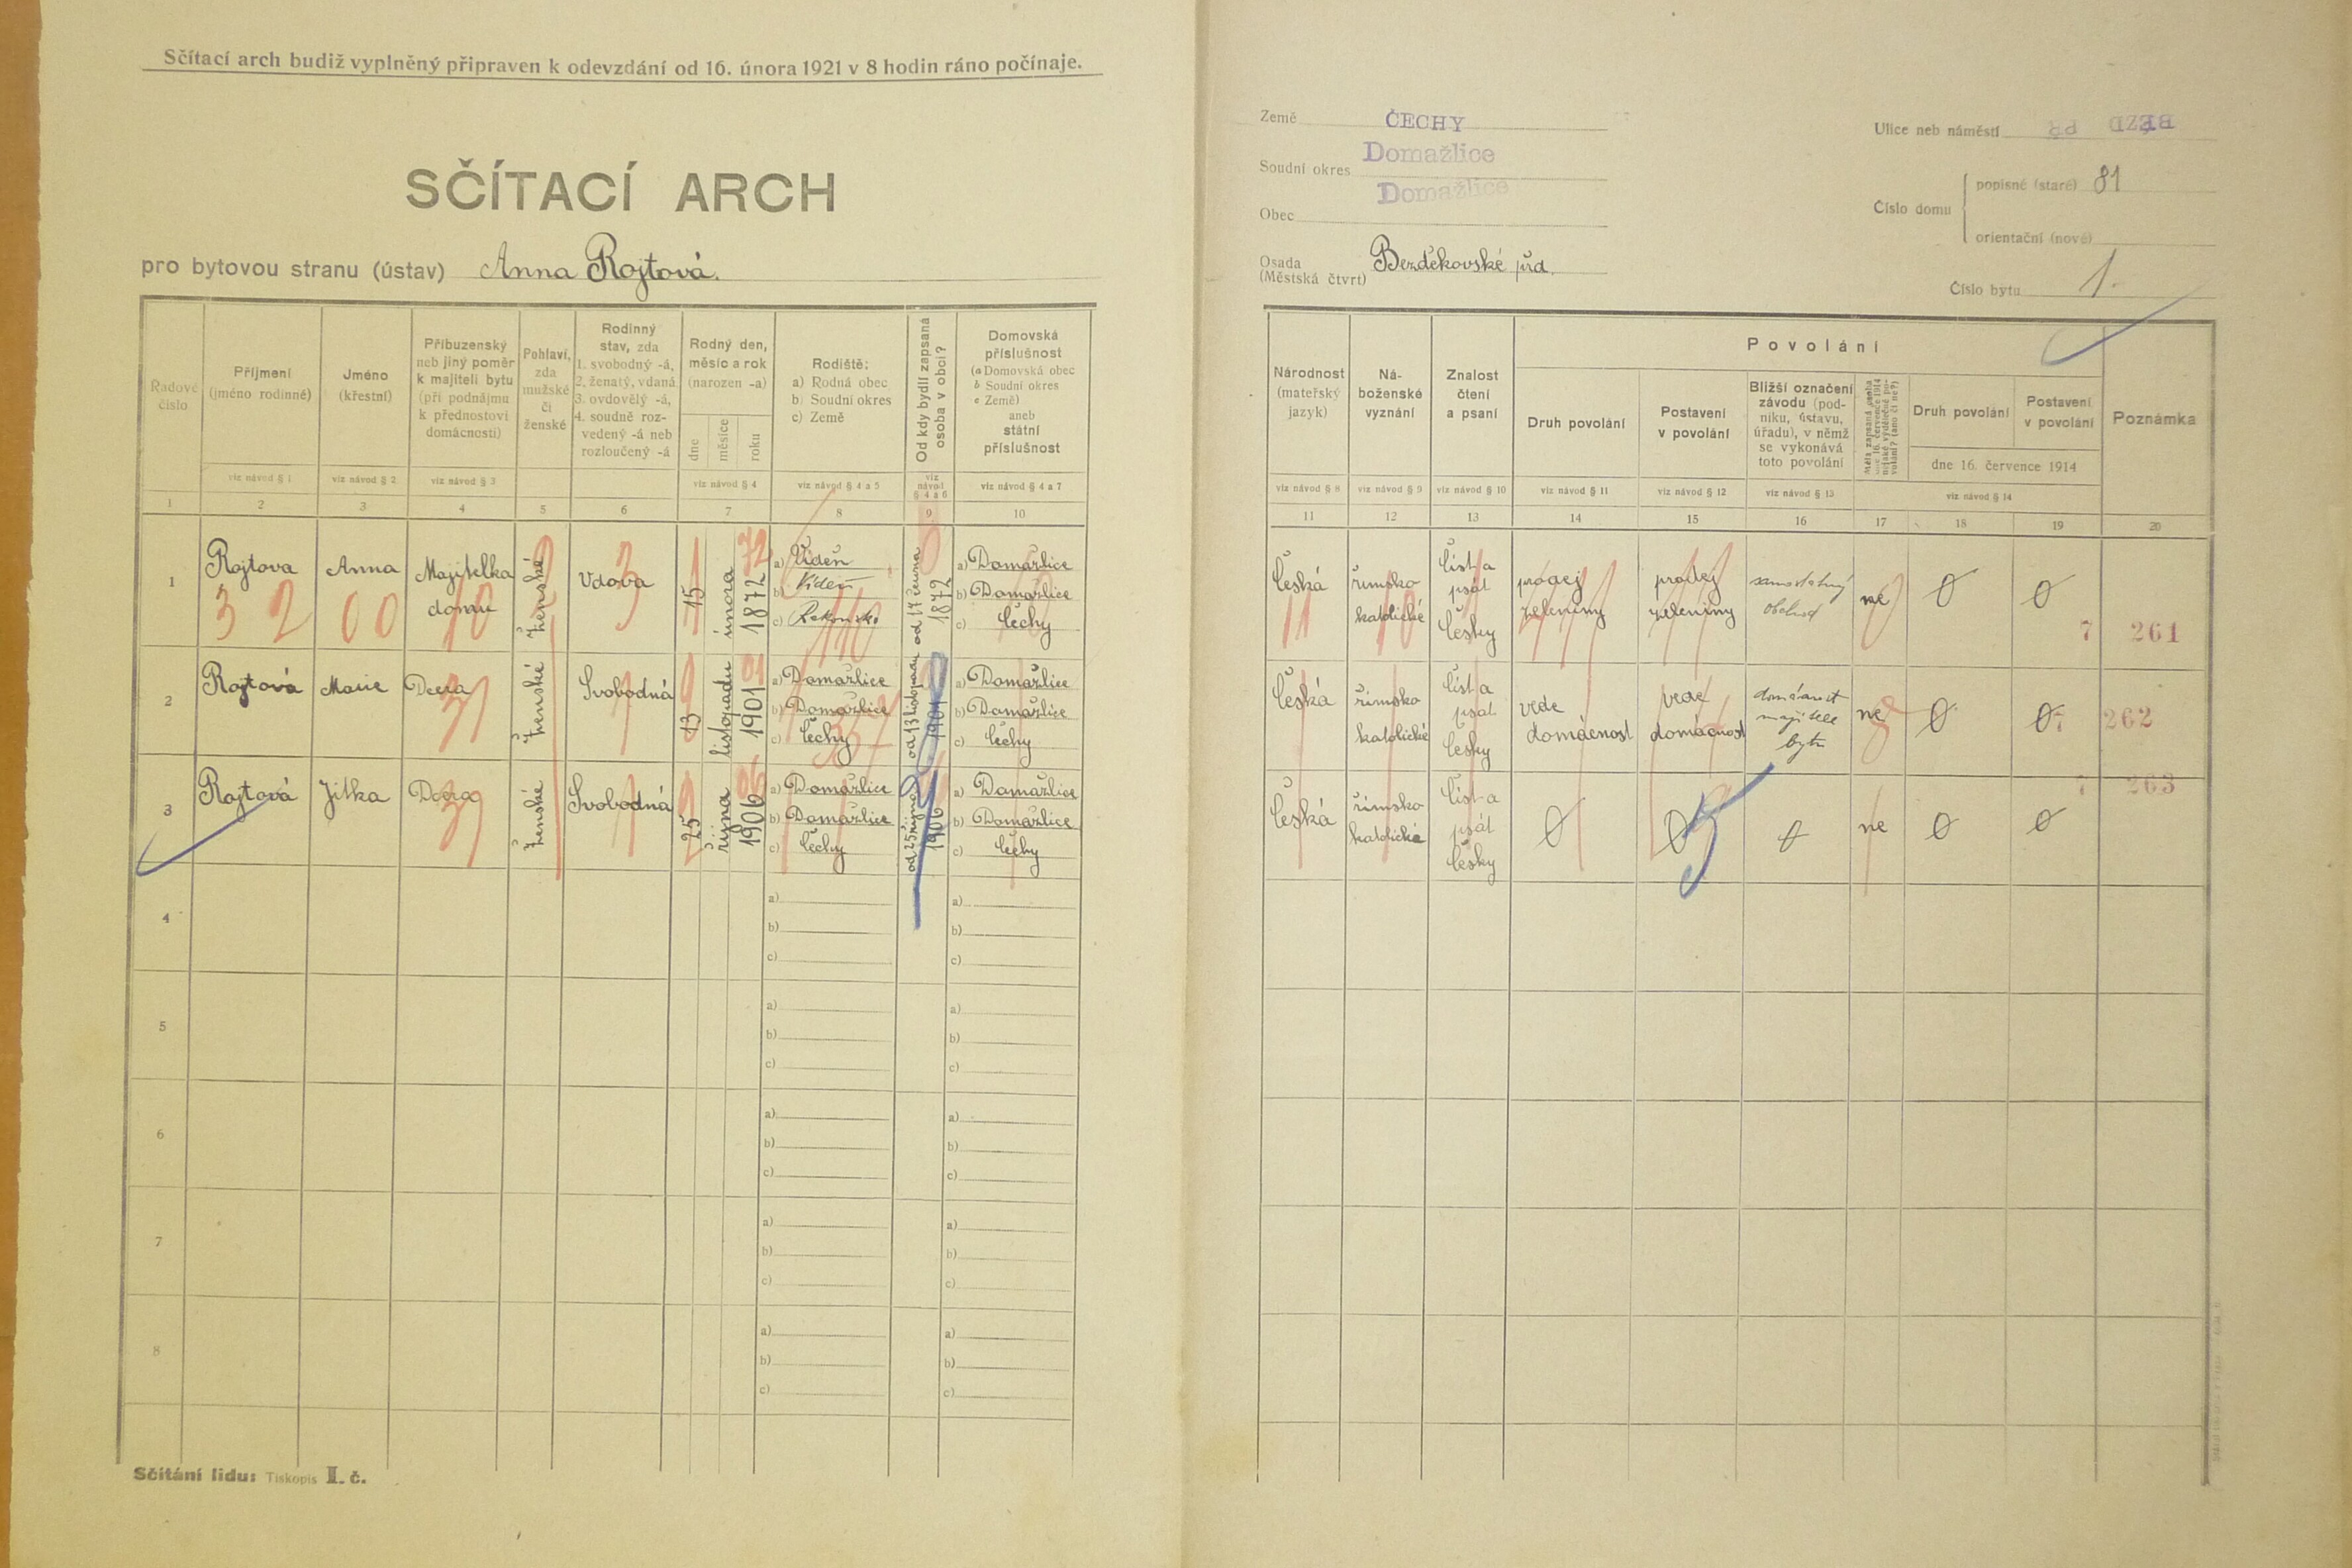 Sčítací arch budiž vyplněný připraven k odevzdání od 16. února 1921 v 8 hodin ráno počínaje.
SČÍTACÍ ARCH
pro bytovou stranu (ústav) Anna Rojtová.
Řadové číslo
Příjmení (jméno rodinné)
viz návod § 1
Jméno (křestní)
viz návod § 2
Příbuzenský neb jiný poměr k majiteli bytu (při podnájmu k přednostovi domácnosti)
viz návod § 3
Pohlaví, zda mužské či ženské
Rodinný stav, zda 1. svobodný -á, 2. ženatý, vdaná 3. ovdovělý -á, 4. soudně rozvedený -á neb rozloučený -á
Rodný den, měsíc a rok (narozen -a)
dne měsíce roku
viz návod § 4
Rodiště:
a) Rodná obec
b) Soudní okres
c) Země
viz návod § 4 a 5
Od kdy bydlí zapsaná osoba v obci?
viz návod § 4 a 6
Domovská příslušnost
(a Domovská obec
b Soudní okres
c Země)
aneb
státní příslušnost
viz návod § 4 a 7
1 2 3 4 5 6 7 8 9 10
1 Rojtova Anna Majitelka domu ženské Vdova 15 února 1872
a) Vídeň
b) Vídeň
c) Rakousko
od 17 1872
a) Domažlice
b) Domažlice
c) Čechy
3 2 0 0 10 3 72 110
2 Rojtová Marie Dcera ženské Svobodná 13 listopadu 1901
a) Domažlice
b) Domažlice
c) Čechy
od 13 listopadu 1901
a) Domažlice
b) Domažlice
c) Čechy
01
3 Rojtová Jitka Dcera ženské Svobodná 25 října 1906
a) Domažlice
b) Domažlice
c) Čechy
od 25 října 1906
a) Domažlice
b) Domažlice
c) Čechy
06
4 a) b) c) a) b) c)
5 a) b) c) a) b) c)
6 a) b) c) a) b) c)
7 a) b) c) a) b) c)
8 a) b) c) a) b) c)
Sčítání lidu: Tiskopis II. č.
Země ČECHY
Soudní okres Domažlice
Obec Domažlice
Osada (Městská čtvrt) Bezděkovské přd.
Ulice neb náměstí BEZD PŘ
Číslo domu
popisné (staré) 81
orientační (nové)
Číslo bytu 1.
Národnost (mateřský jazyk)
viz návod § 8
Náboženské vyznání
viz návod § 9
Znalost čtení a psaní
viz návod § 10
Povolání
Druh povolání
viz návod § 11
Postavení v povolání
viz návod § 12
Bližší označení závodu (podniku, ústavu, úřadu), v němž se vykonává toto povolání
viz návod § 13
Měla zapsaná osoba dne 16. července 1914 nějaké výdělečné povolání? (ano či ne?)
Druh povolání
Postavení v povolání
dne 16. července 1914
viz návod § 14
Poznámka
11 12 13 14 15 16 17 18 19 20
Česká římsko katolické číst a psát česky prodej zeleniny prodej zeleniny samostatný obchod ne 0 0
7 261
Česká římsko katolické číst a psát česky vede domácnost vede domácnost domácnost majitele bytu ne 0 0
7 262
Česká římsko katolické číst a psát česky 0 0 0 ne 0 0
7 263